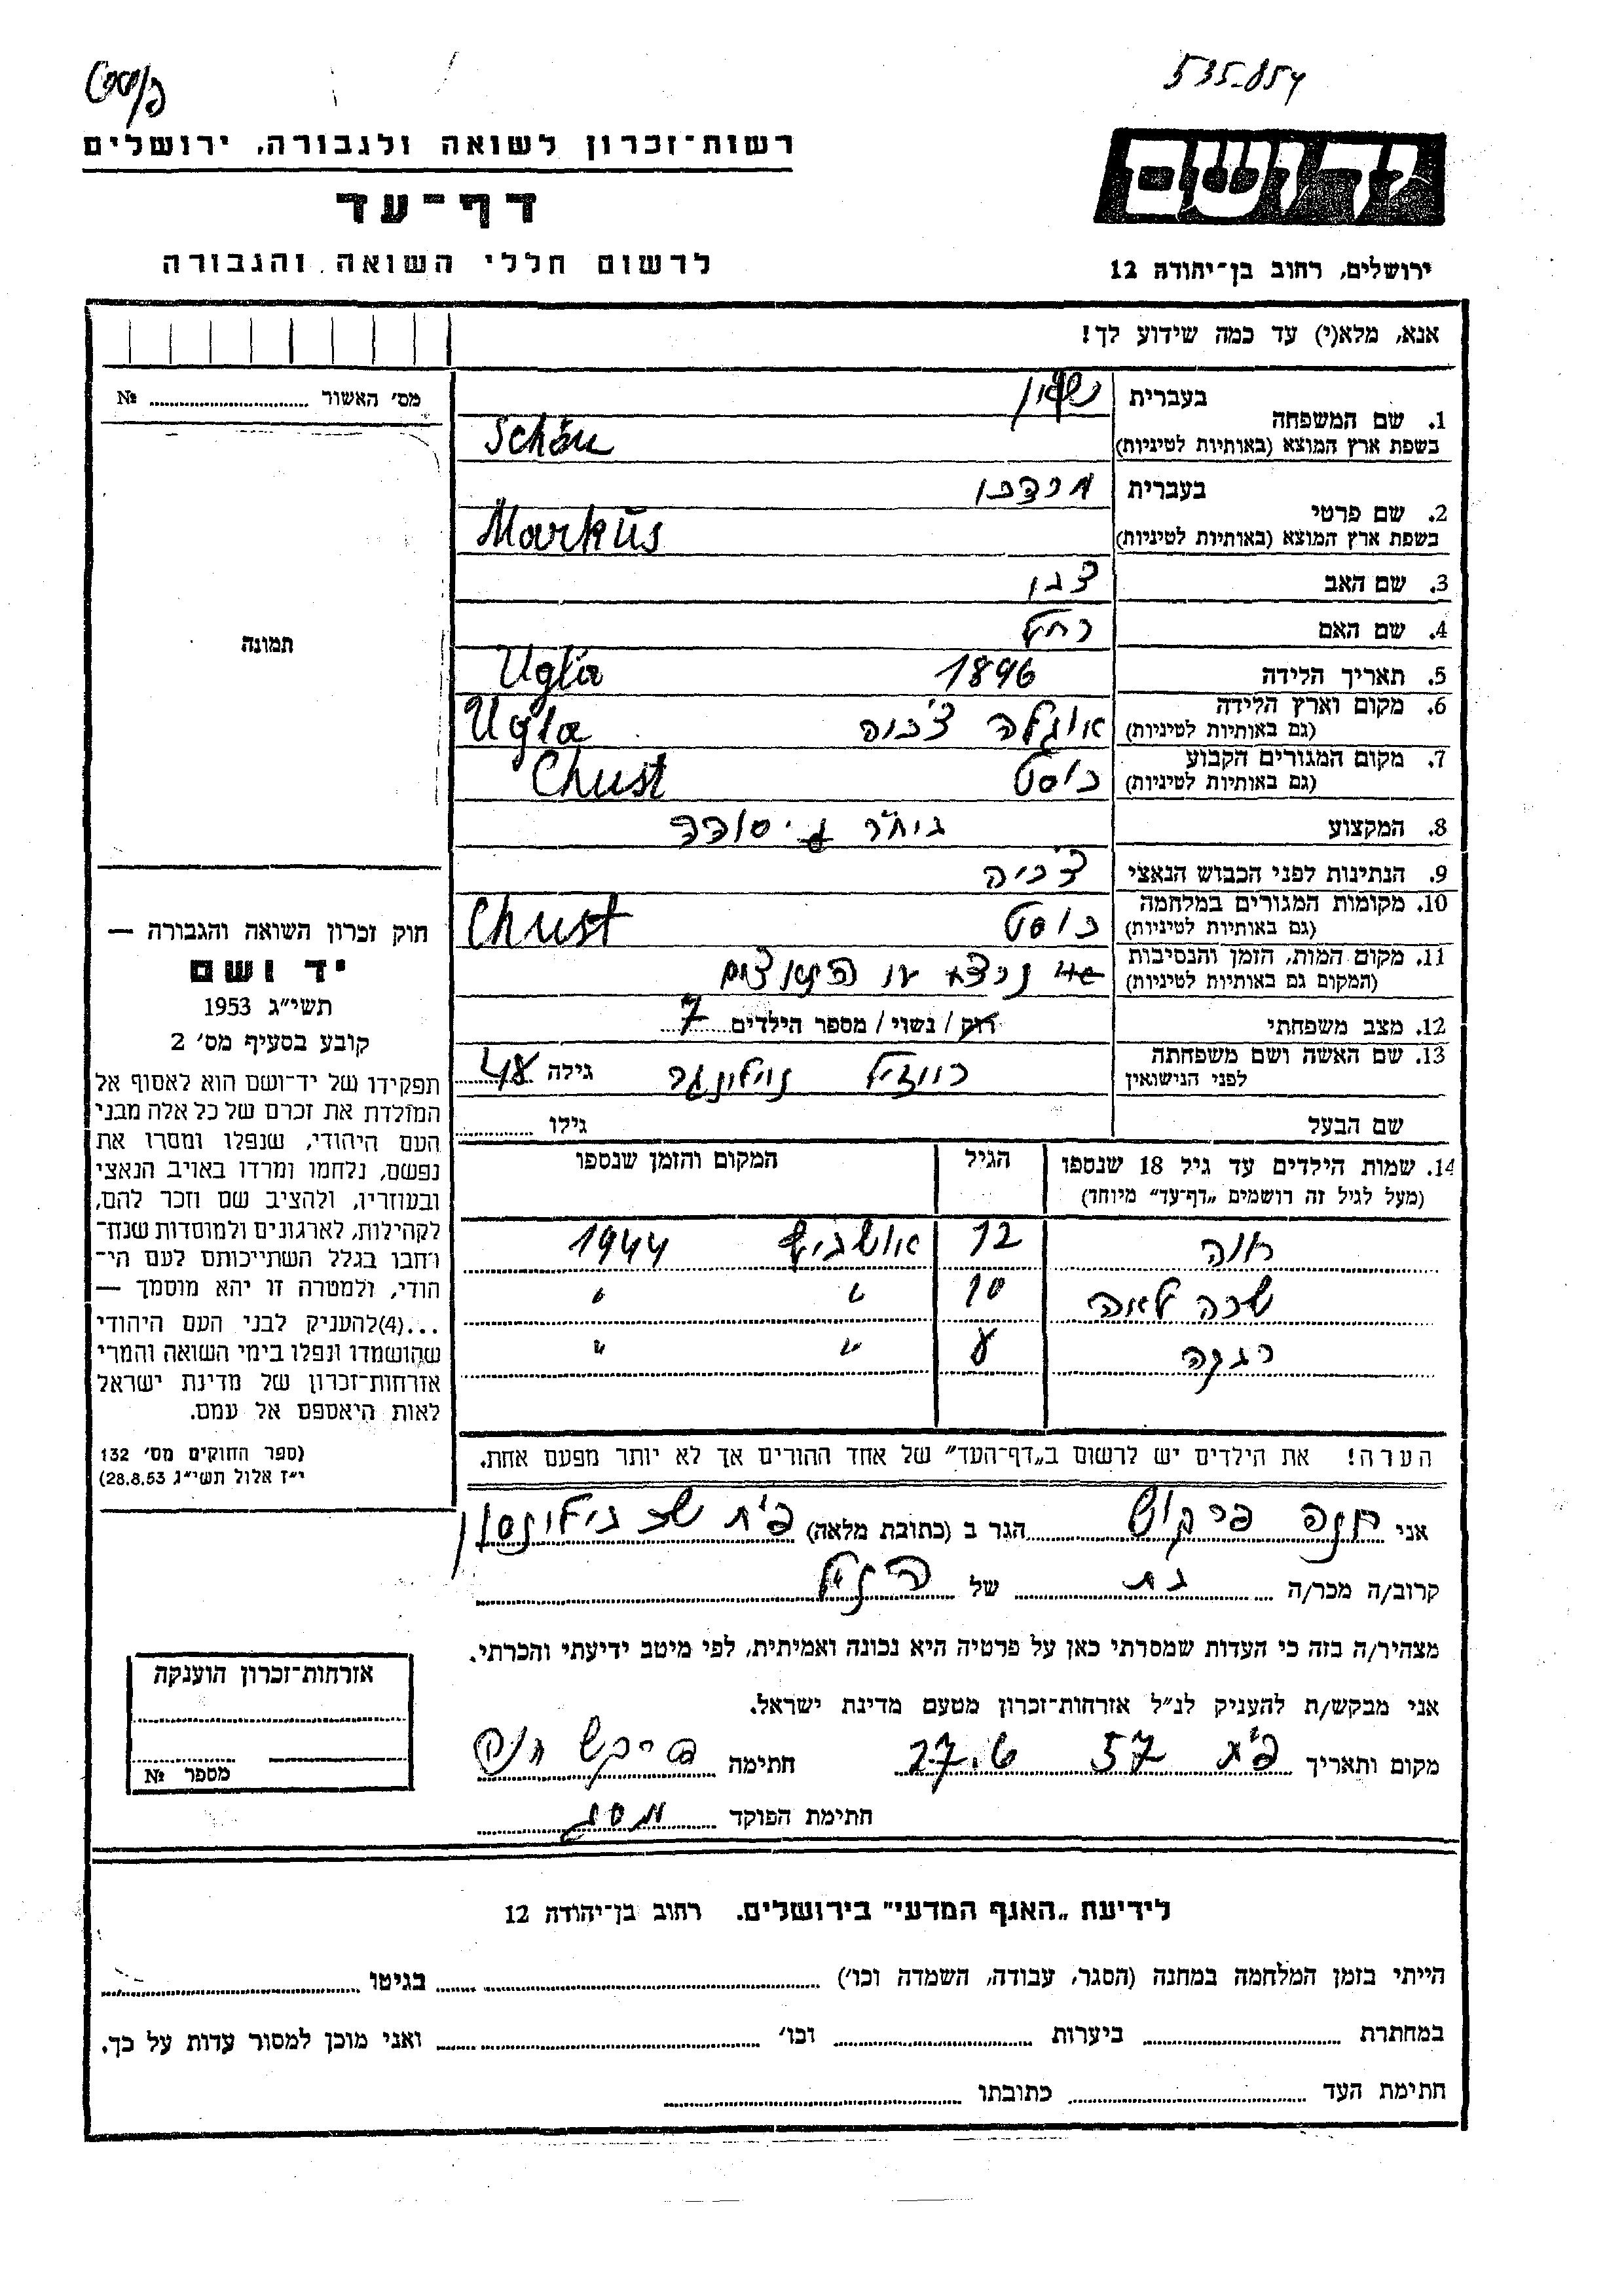 535-854
רשות־זכרון לשואה ולגבורה, ירושלים
יד ושם
דף־עד
לרשום חללי השואה והגבורה
ירושלים, רחוב בן־יהודה 12
אנא, מלא(י) עד כמה שידוע לך!
מס׳ האשור № ............
1. שם המשפחה בעברית
בשפת ארץ המוצא (באותיות לטיניות) Schön
2. שם פרטי בעברית מרדכי
בשפת ארץ המוצא (באותיות לטיניות) Markus
3. שם האב צבי
4. שם האם רחל
5. תאריך הלידה 1896 Ugla
6. מקום וארץ הלידה (גם באותיות לטיניות) אוגלה צ'כיה Ugla
7. מקום המגורים הקבוע (גם באותיות לטיניות) כוסט Chust
8. המקצוע
9. הנתינות לפני הכבוש הנאצי צ'כיה
10. מקומות המגורים במלחמה (גם באותיות לטיניות) כוסט Chust
11. מקום המות, הזמן והנסיבות (המקום גם באותיות לטיניות) נרצח
12. מצב משפחתי רוק / נשוי / מספר הילדים 7
13. שם האשה ושם משפחתה לפני הנישואין גילה
שם הבעל גילו ............
14. שמות הילדים עד גיל 18 שנספו הגיל המקום והזמן שנספו
(מעל לגיל זה רושמים „דף־עד״ מיוחד)
12 אושביץ 1944
שרה לאה 10 " "
רבקה " "
הערה! את הילדים יש לרשום ב„דף־העד״ של אחד ההורים אך לא יותר מפעם אחת.
תמונה
חוק זכרון השואה והגבורה —
יד ושם
תשי״ג 1953
קובע בסעיף מס׳ 2
תפקידו של יד־ושם הוא לאסוף אל
המולדת את זכרם של כל אלה מבני
העם היהודי, שנפלו ומסרו את
נפשם, נלחמו ומרדו באויב הנאצי
ובעוזריו, ולהציב שם וזכר להם,
לקהילות, לארגונים ולמוסדות שנח־
רבו בגלל השתייכותם לעם הי־
הודי, ולמטרה זו יהא מוסמך —
...(4) להעניק לבני העם היהודי
שהושמדו ונפלו בימי השואה והמרי
אזרחות־זכרון של מדינת ישראל
לאות היאספם אל עמם.
(ספר החוקים מס׳ 132
י״ז אלול תשי״ג 28.8.53)
אני חנה הגר ב (כתובת מלאה) פ"ת
קרוב/ה מכר/ה בת של הנ״ל
מצהיר/ה בזה כי העדות שמסרתי כאן על פרטיה היא נכונה ואמיתית, לפי מיטב ידיעתי והכרתי.
אני מבקש/ת להעניק לנ״ל אזרחות־זכרון מטעם מדינת ישראל.
מקום ותאריך פ"ת 27.6 57 חתימה
חתימת הפוקד
אזרחות־זכרון הוענקה
מספר №
לידיעת „האגף המדעי״ בירושלים. רחוב בן־יהודה 12
הייתי בזמן המלחמה במחנה (הסגר, עבודה, השמדה וכו׳) ............ בגיטו ............
במחתרת ............ ביערות ............ וכו׳ ............ ואני מוכן למסור עדות על כך.
חתימת העד ............ כתובתו ............